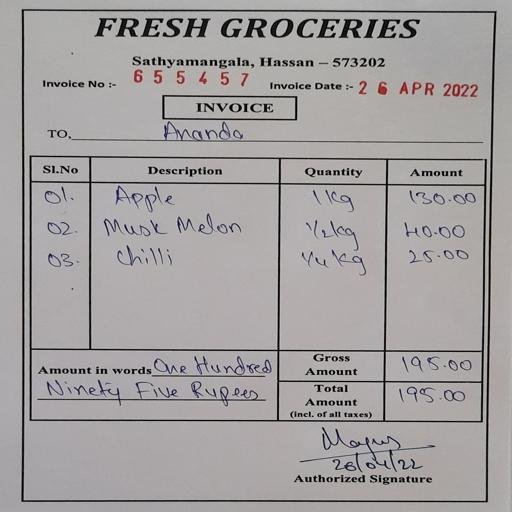 FRESH GROCERIES
Sathyamangala, Hassan – 573202
Invoice No :- 655457 Invoice Date :- 26 APR 2022
INVOICE
TO, Ananda
Sl.No Description Quantity Amount
01. Apple 1kg 130.00
02. Musk Melon 1/2kg 40.00
03. Chilli 1/4 kg 25.00
Amount in words One Hundred Ninety Five Rupees
Gross Amount 195.00
Total Amount (incl. of all taxes) 195.00
26/04/22
Authorized Signature